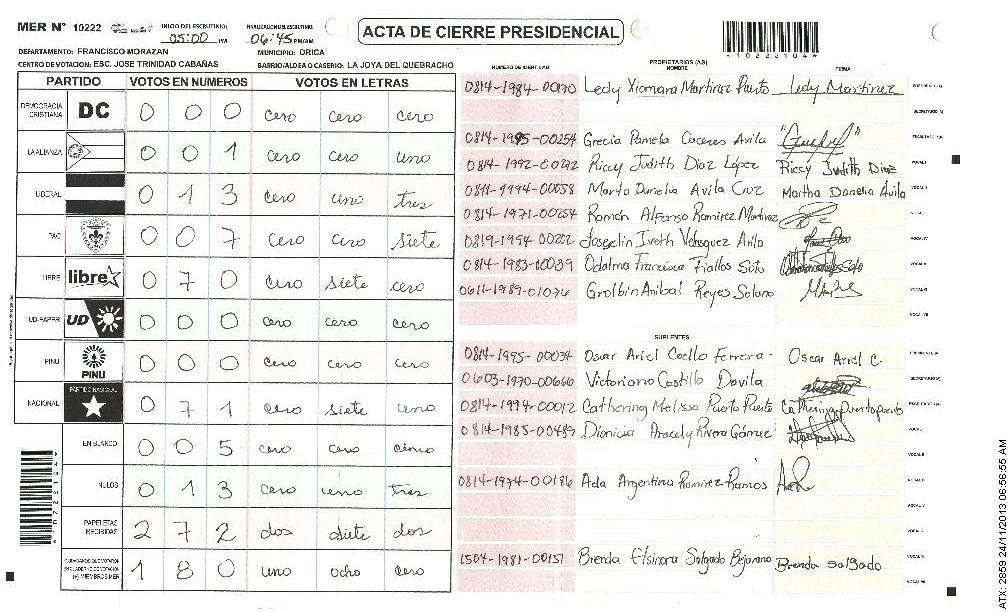 MER N° 10222
INICIO DEL ESCRUTINIO: 05:00 PM
FINALIZACION DEL ESCRUTINIO: 06:45 PM/AM
ACTA DE CIERRE PRESIDENCIAL
*102222104*
DEPARTAMENTO: FRANCISCO MORAZAN
MUNICIPIO: ORICA
CENTRO DE VOTACION: ESC. JOSE TRINIDAD CABAÑAS
BARRIO/ALDEA O CASERIO: LA JOYA DEL QUEBRACHO
PARTIDO VOTOS EN NUMEROS VOTOS EN LETRAS
DEMOCRACIA CRISTIANA DC 0 0 0 cero cero cero
LA ALIANZA 0 0 1 cero cero uno
LIBERAL 0 1 3 cero uno tres
PAC 0 0 7 cero cero siete
LIBRE libre 0 7 0 cero siete cero
UD-FAPER UD 0 0 0 cero cero cero
PINU PINU 0 0 0 cero cero cero
NACIONAL PARTIDO NACIONAL 0 7 1 cero siete uno
EN BLANCO 0 0 5 cero cero cinco
NULOS 0 1 3 cero uno tres
PAPELETAS RECIBIDAS 2 7 2 dos siete dos
CIUDADANOS QUE VOTARON EN CUADERNO DE VOTACION (+) MIEMBROS MER 1 8 0 uno ocho cero
NUMERO DE IDENTIDAD PROPIETARIOS (AS) NOMBRE FIRMA
0814-1984-00170 Ledy Xiomara Martinez Puerto Ledy Martinez PRESIDENTE (A)
SECRETARIO (A)
0814-1985-00254 Grecia Pamela Caceres Avila ESCRUTADOR (A)
0814-1992-00292 Riccy Judith Diaz López Riccy Judith Diaz VOCAL I
0811-1994-00058 Marta Danelia Avila Cruz Martha Danelia Avila VOCAL II
0814-1971-00254 Ramón Alfonso Ramirez Martinez VOCAL III
0819-1994-00202 Josselin Iveth Velasquez Avila VOCAL IV
0814-1983-00039 Odalma Francisca Fiallos Soto VOCAL V
0611-1989-01076 Grolbin Anibal Reyes Solano VOCAL VI
VOCAL VII
SUPLENTES
0814-1995-00034 Oscar Ariel Coello Ferrera Oscar Ariel C. PRESIDENTE (A)
0603-1970-00666 Victoriano Castillo Davila SECRETARIO (A)
0814-1994-00012 Cathering Melissa Puerto Puerto Cathering Puerto Puerto ESCRUTADOR (A)
0814-1985-00489 Dionicia Aracely Rivera Gómez VOCAL I
VOCAL II
0814-1974-00186 Ada Argentina Ramirez Ramos VOCAL III
VOCAL IV
VOCAL V
1504-1981-00151 Brenda Elsinora Salgado Bejarano Brenda Salgado VOCAL VI
VOCAL VII
ATX: 2959 24/11/2013 06:56:55 AM